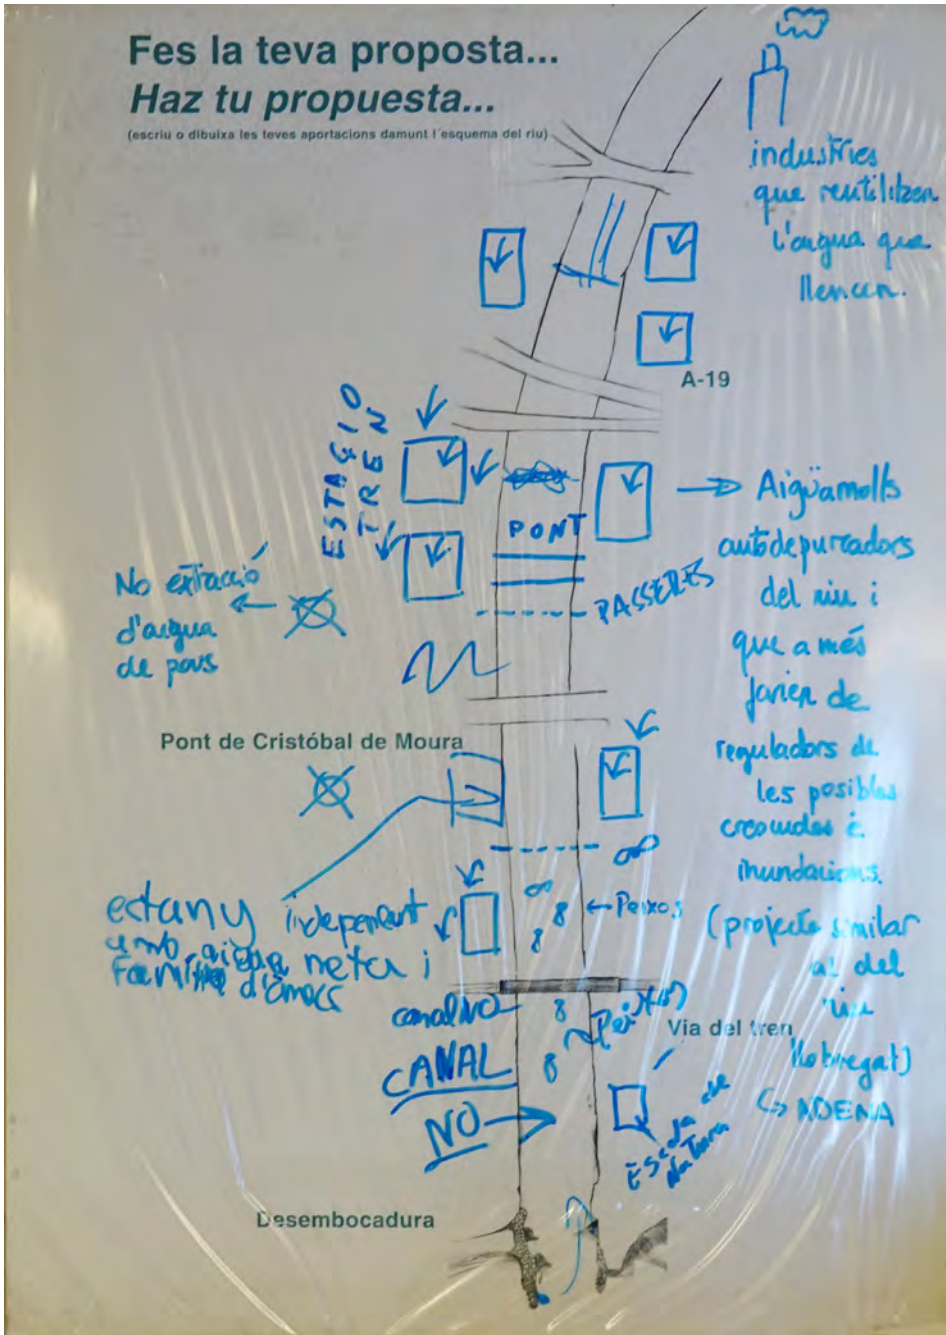 Fes la teva proposta...
Haz tu propuesta...
(escriu o dibuixa les teves aportacions damunt l'esquema del riu)
industries
que reutilitzen
l'aigua que
llencen.
A-19
ESTACIO
TREN
PONT
PASSERES
Aigüamolls
autodepuradors
del riu i
que a més
farien de
reguladors de
les posibles
crescudes e
inundacions.
(projecte similar
al del
riu
llobregat)
ADENA
No extracció
d'aigua
de pous
Pont de Cristóbal de Moura
estany independent
amb aigua neta i
d'ànecs
Peixos
canal NO
Via del tren
CANAL
NO
Escola de
Natura
Desembocadura